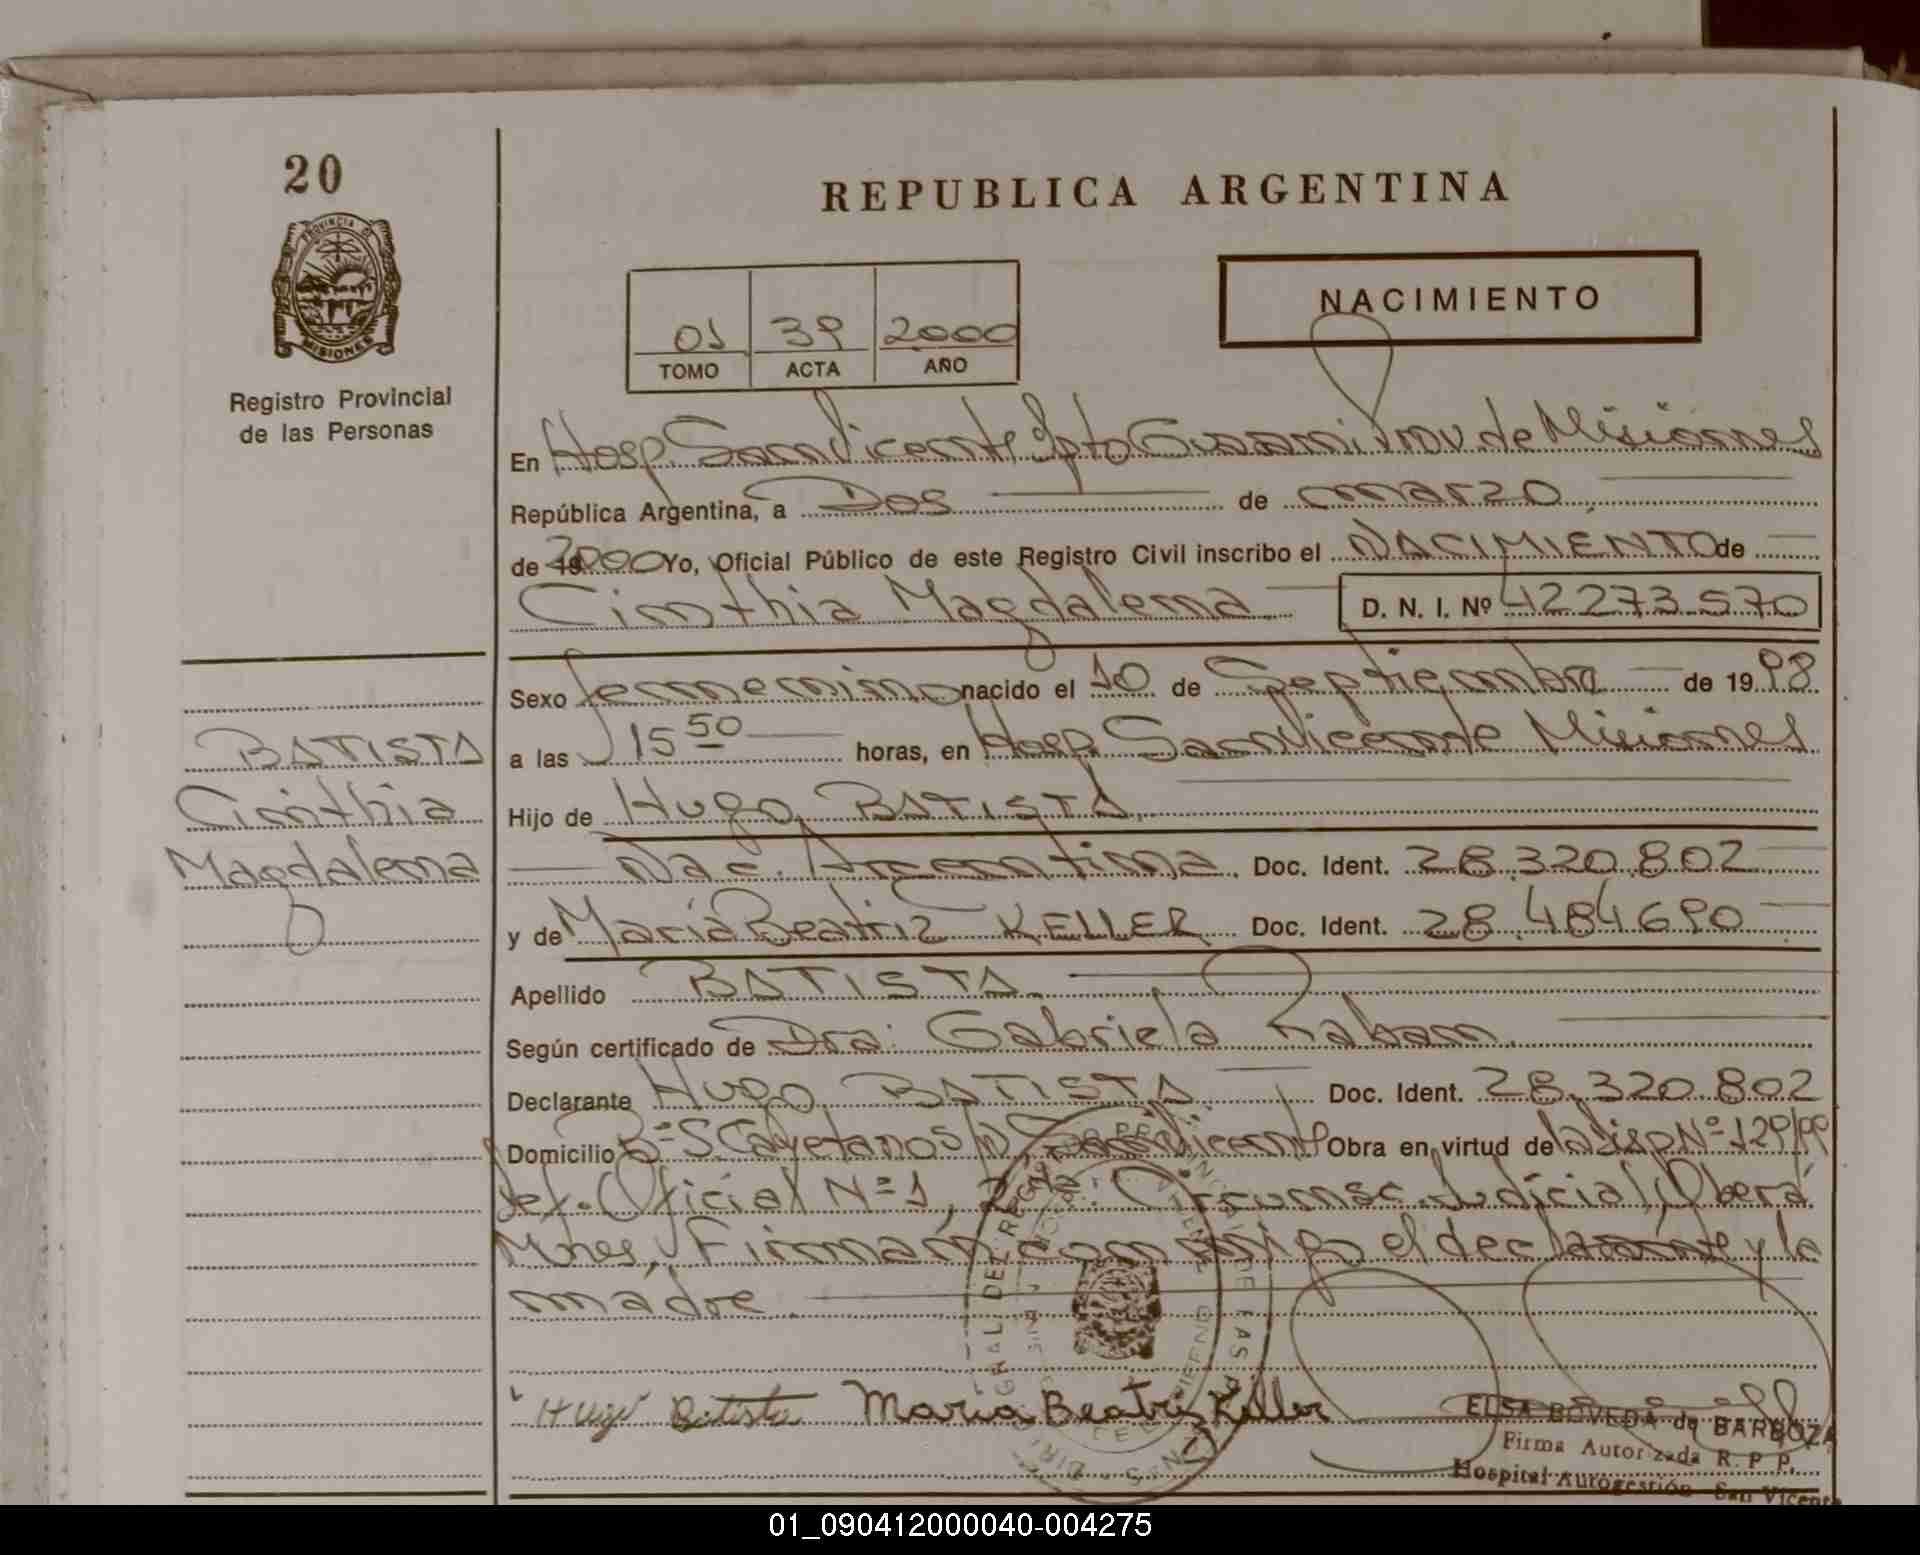 20
REPUBLICA ARGENTINA
PROVINCIA DE
MISIONES
Registro Provincial
de las Personas
NACIMIENTO
01 39 2000
TOMO ACTA AÑO
En Hosp San Vicente Dpto Guarani Prov. de Misiones
República Argentina, a Dos de marzo
de 2000 Yo, Oficial Público de este Registro Civil inscribo el NACIMIENTO de
Cinthia Magdalena D. N. I. Nº 42273570
Sexo femenino nacido el 10 de Septiembre de 1998
a las 15 50 horas, en Hosp. San Vicente Misiones
Hijo de Hugo BATISTA
Nac. Argentina. Doc. Ident. 28.320.802
y de María Beatriz KELLER Doc. Ident. 28.484690
Apellido BATISTA
Según certificado de Dra: Gabriela
Declarante Hugo BATISTA Doc. Ident. 28.320.802
Domicilio Bº S. Cayetano S/N San Vicente Obra en virtud de la Disp Nº 129/99
def. Oficial Nº 1, 2da. Circunsc. Judicial, Oberá
Mnes, Firman conmigo el declarante y la
madre.
BATISTA
Cinthia
Magdalena
Hugo Batista María Beatriz Keller
ELSA BOVEDA de BARBOZA
Firma Autorizada R. P. P.
Hospital Autogestión San Vicente
01_090412000040-004275